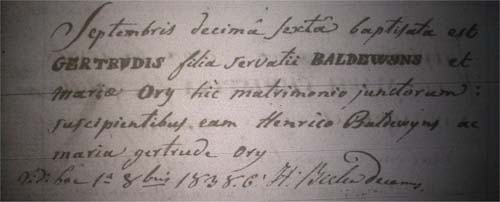 Septembris decimâ sextâ baptisata est
GERTRUDIS filia servatii BALDEWYNS et
mariæ Ory hic matrimonio junctorum:
suscipientibus eam Henrico Baldewyns ac
maria gertrude Ory
hac 1ª 8bris 1838. H: decanus.